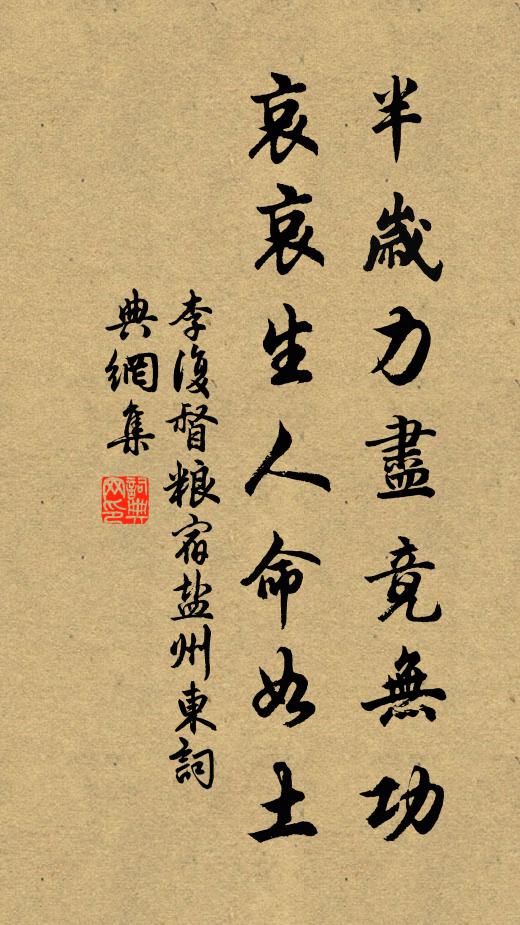 半歲力盡竟無功
哀哀生人命如土
李復督粮宿盐州東詞
典網集
詞典网印